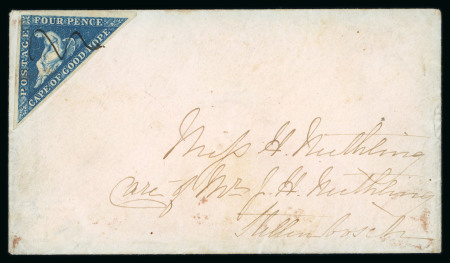 POSTAGE
FOUR PENCE
CAPE OF GOOD HOPE
Miss H. Neethling
care of Mr J. H. Neethling
Stellenbosch